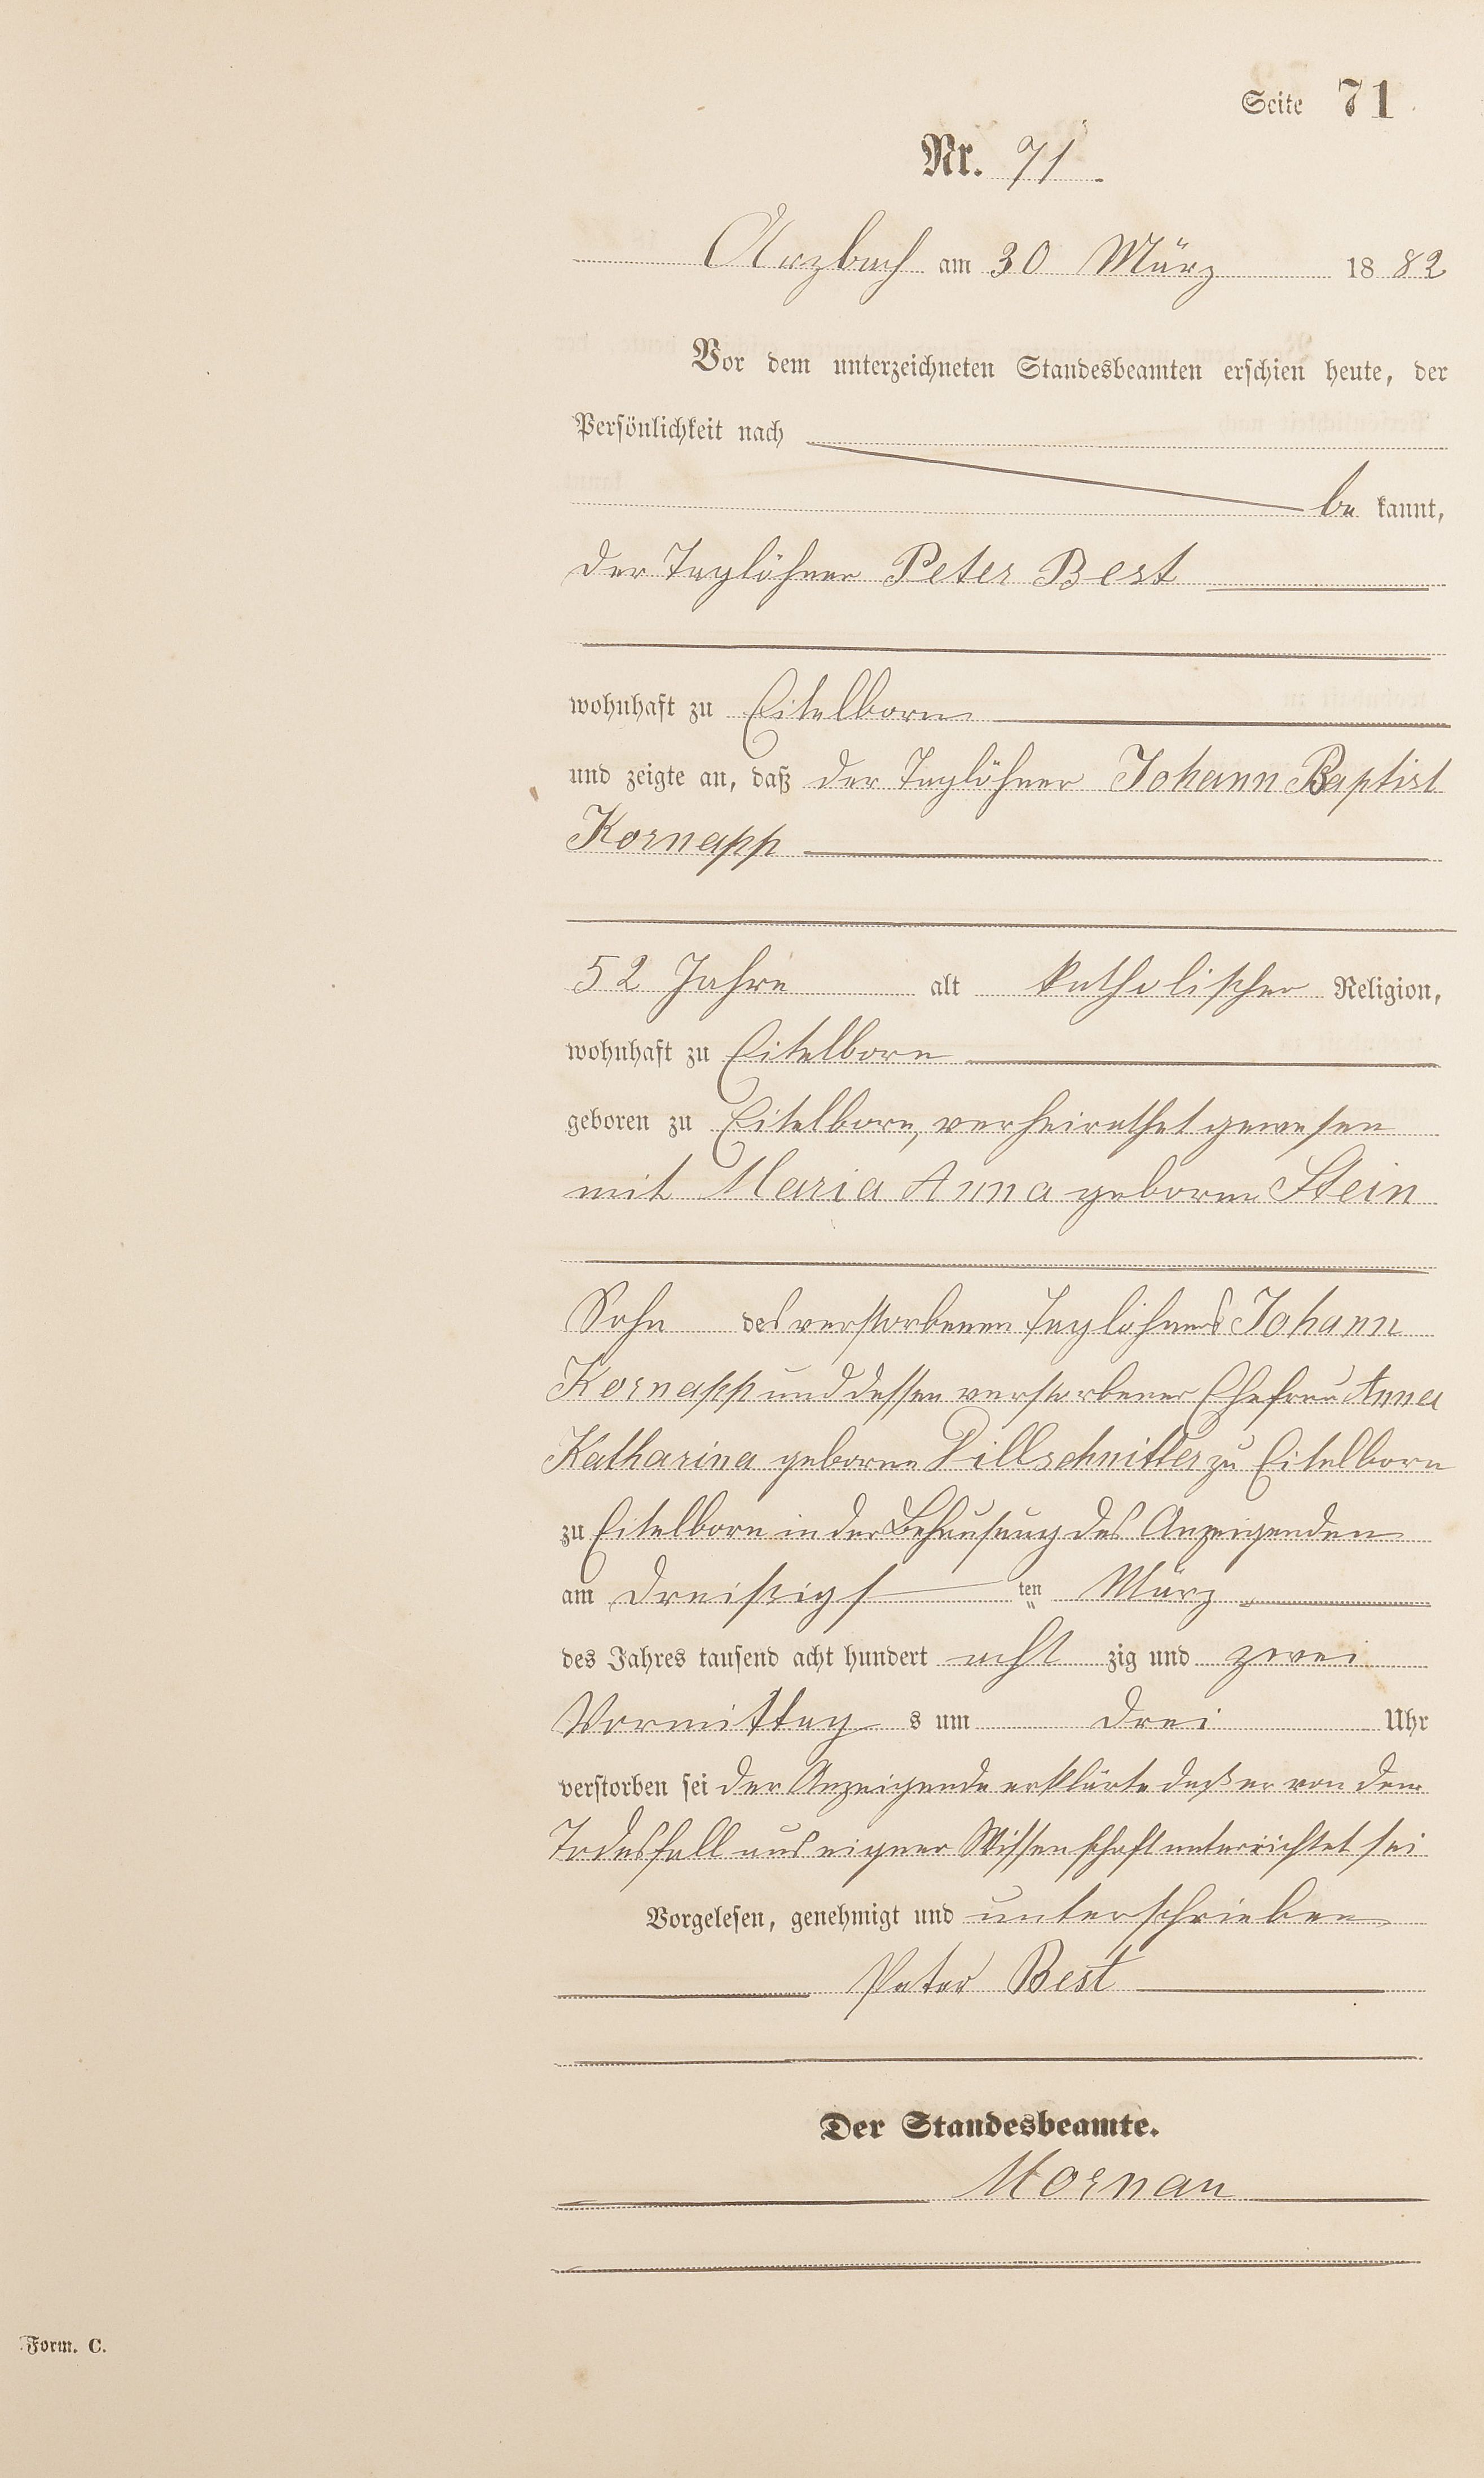 Seite 71
Nr. 71
Arzbach am 30 März 1882
Vor dem unterzeichneten Standesbeamten erschien heute, der
Persönlichkeit nach
be kannt,
der Taglöhner Peter Best
wohnhaft zu Eitelborn
und zeigte an, daß der Taglöhner Johann Baptist
Kornapp
52 Jahre alt katholischer Religion,
wohnhaft zu Eitelborn
geboren zu Eitelborn, verheirathet gewesen
mit Maria Anna geborne Stein
Sohn des verstorbenen Taglöhners Johann
Kornapp und dessen verstorbener Ehefrau Anna
Katharina geborne Dillschnitter zu Eitelborn
zu Eitelborn in der Behausung des Anzeigenden
am dreißigs ten März
des Jahres tausend acht hundert acht zig und zwei
Vormittag s um drei Uhr
verstorben sei der Anzeigende erklärte daß er von dem
Todesfall aus eigner Wissenschaft unterrichtet sei
Vorgelesen, genehmigt und unterschrieben
Peter Best
Der Standesbeamte.
Mornau
Form. C.